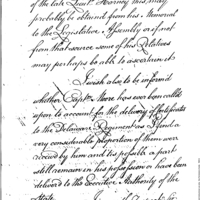 of the late Lieut. Harney this may
probably be obtained from his Memorial
to the Legislative Assembly or if not
from that source some of his Relatives
may perhaps be able to ascertain it
I wish also to be informed
whether Capt. Moore has ever been called
upon to account for the delivery of Certificates
to the Delaware Regiment as I find a
very considerable proportion of them were
received by him and its possible a part
still remain in his possession or have been
deliver'd to the Executive Authority of the
State